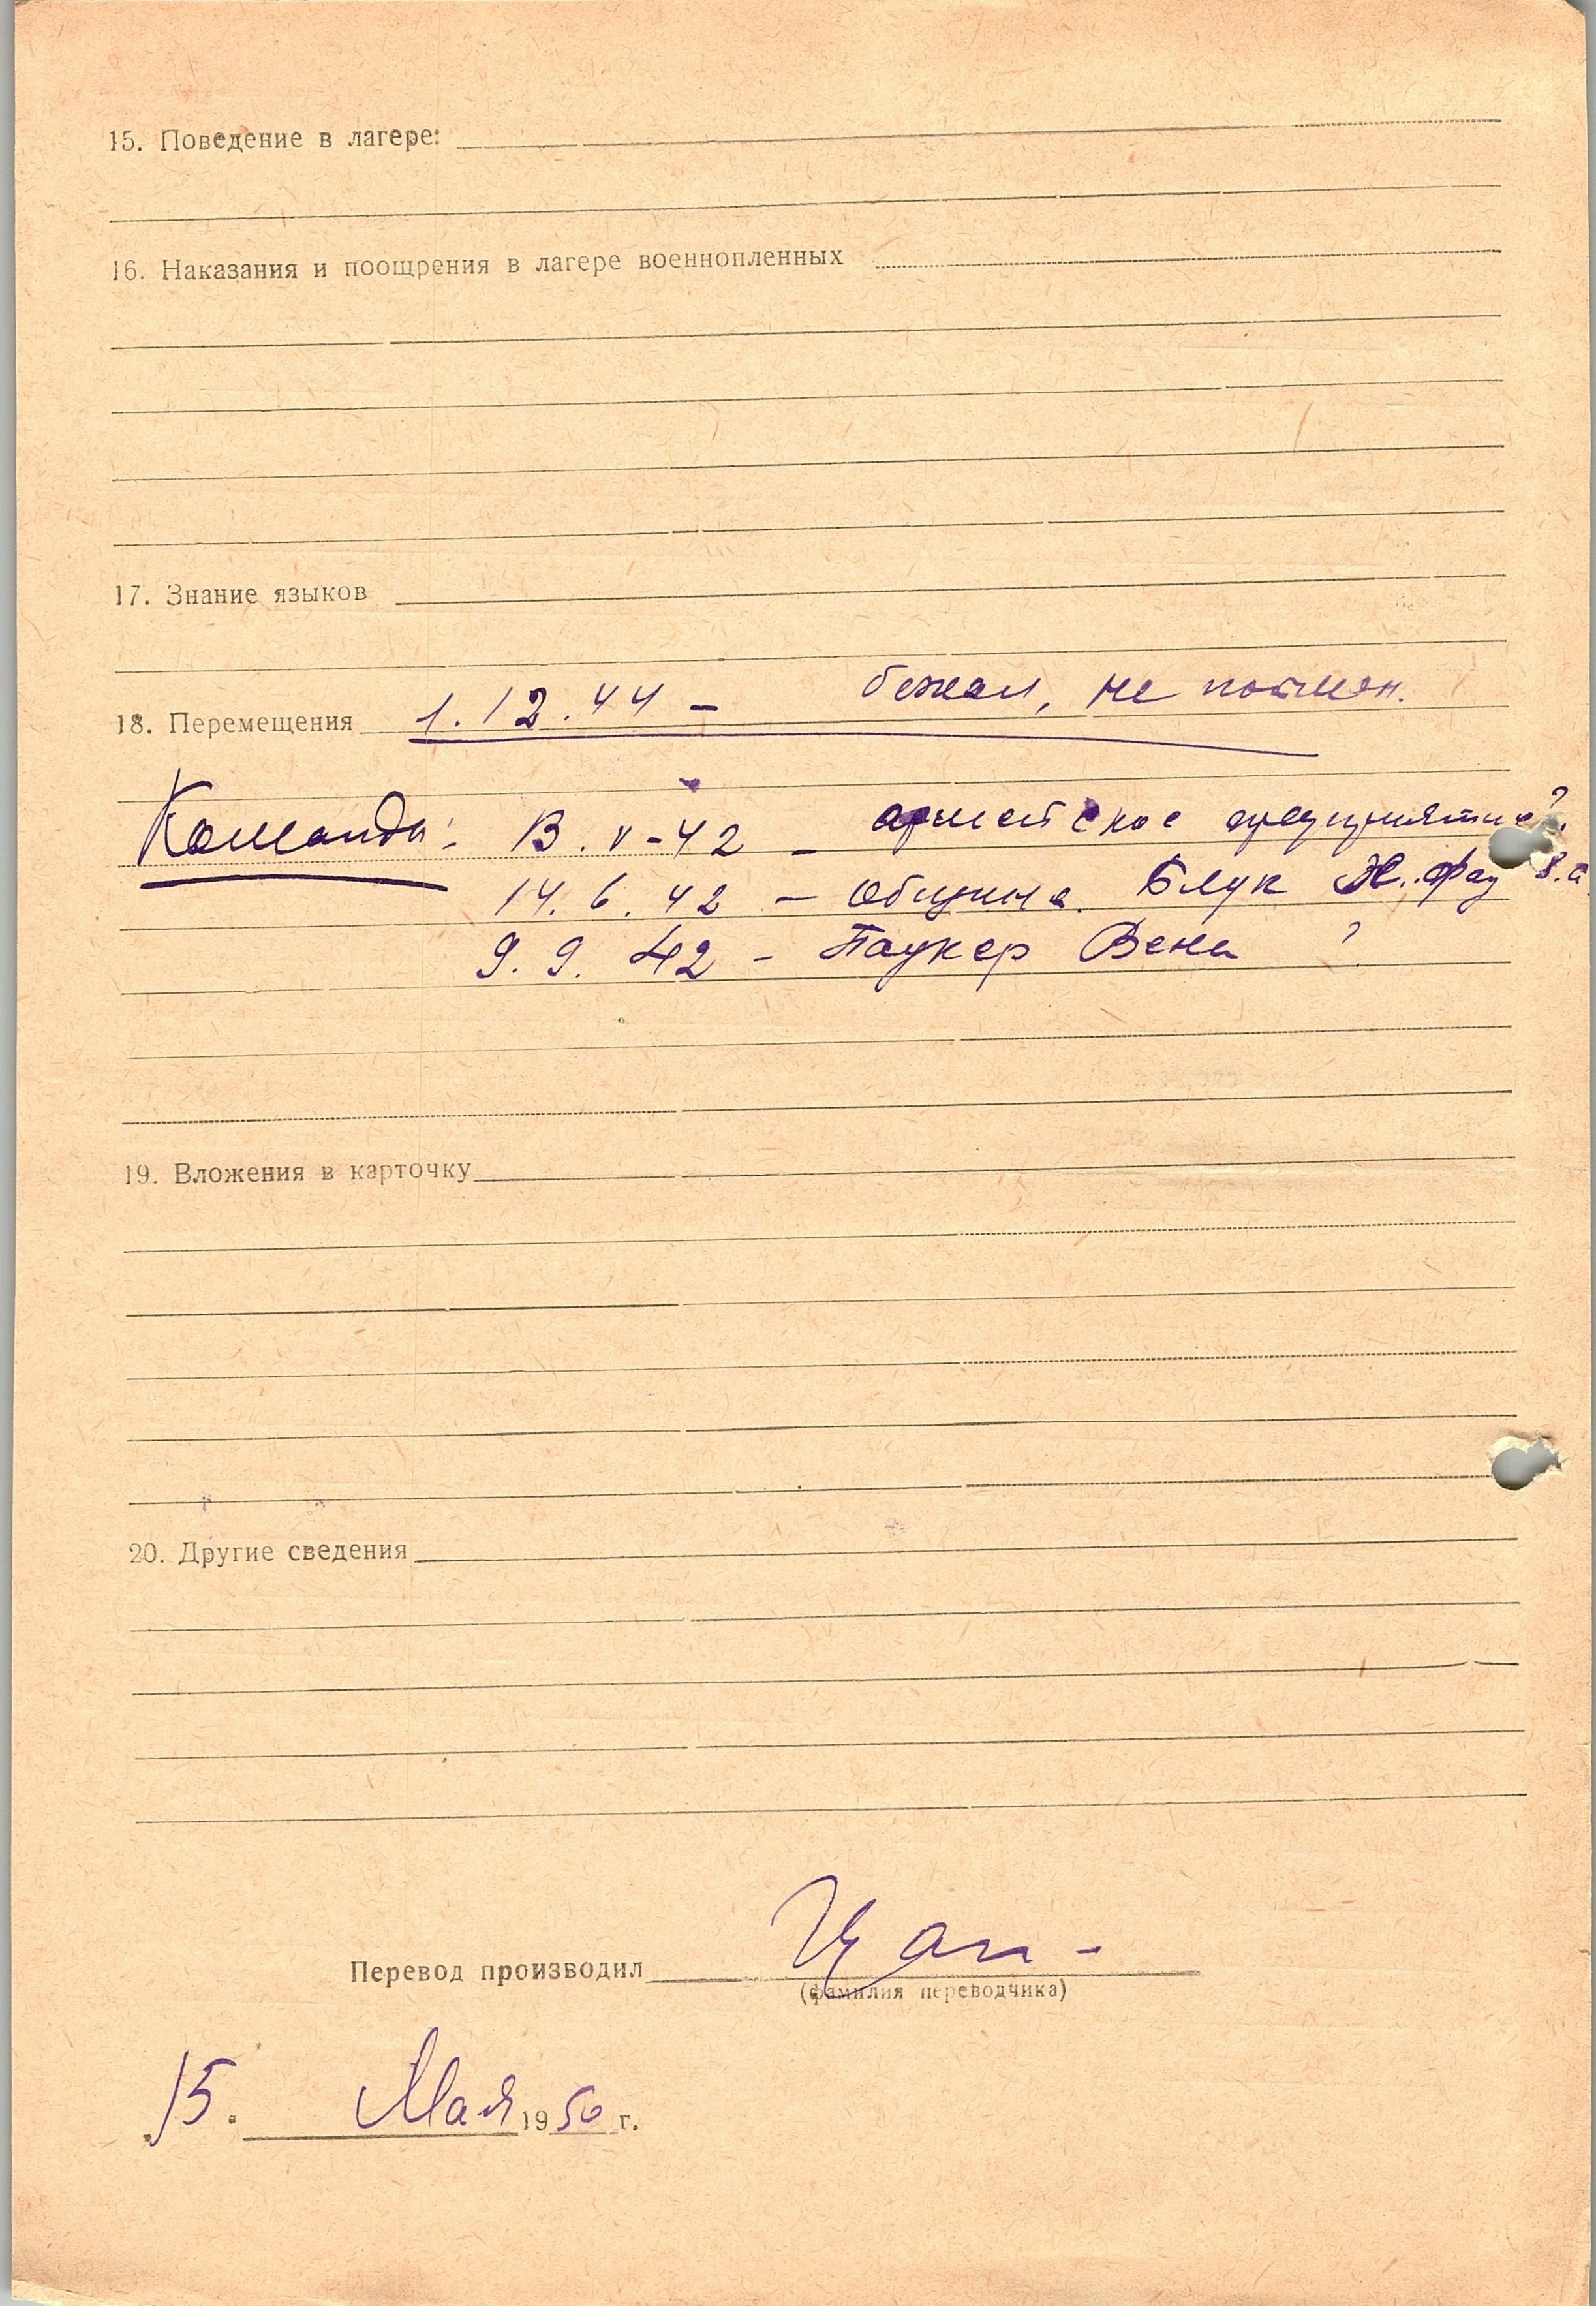 15. Поведение в лагере:
16. Наказания и поощрения в лагере военнопленных
17. Знание языков
18. Перемещения 1.12.44 – бежал, не пойман.
Команды: 13.V-42 – армейское предприятие?
14.6.42 – община. Блук
9.9.42 – Паукер Вена ?
19. Вложения в карточку
20. Другие сведения
Перевод производил
(фамилия переводчика)
15. Мая 1950 г.